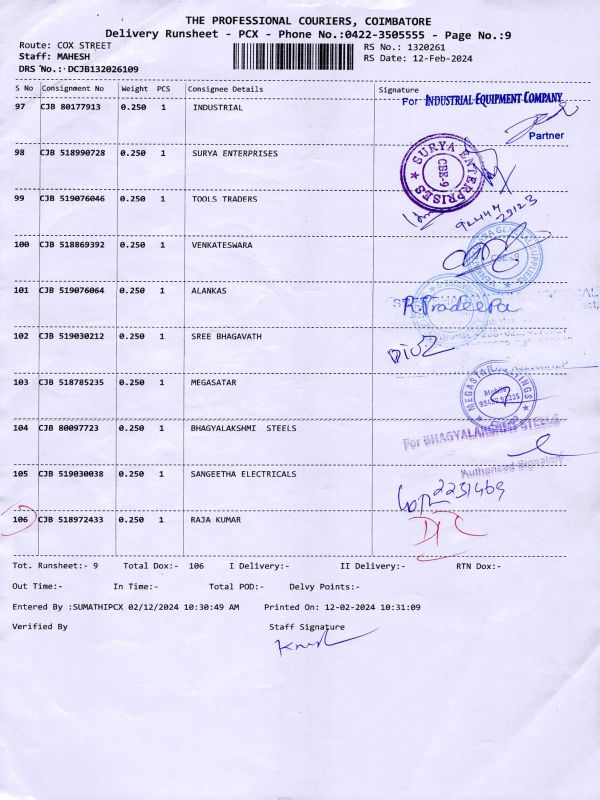 THE PROFESSIONAL COURIERS, COIMBATORE
Delivery Runsheet - PCX - Phone No.:0422-3505555 - Page No.:9
Route: COX STREET
RS No.: 1320261
Staff: MAHESH
RS Date: 12-Feb-2024
DRS No.: DCJB132026109
S No Consignment No Weight PCS Consignee Details Signature
97 CJB 80177913 0.250 1 INDUSTRIAL
For INDUSTRIAL EQUIPMENT COMPANY
Partner
98 CJB 518990728 0.250 1 SURYA ENTERPRISES
SURYA ENTERPRISES
CBE-9
99 CJB 519076046 0.250 1 TOOLS TRADERS
92444
29123
100 CJB 518869392 0.250 1 VENKATESWARA
101 CJB 519076064 0.250 1 ALANKAS
R. Pradeepa
102 CJB 519030212 0.250 1 SREE BHAGAVATH
103 CJB 518785235 0.250 1 MEGASATAR
104 CJB 80097723 0.250 1 BHAGYALAKSHMI STEELS
For BHAGYALAKSHMI STEELS
Authorised Signatory
105 CJB 519030038 0.250 1 SANGEETHA ELECTRICALS
2231469
106 CJB 518972433 0.250 1 RAJA KUMAR
Tot. Runsheet:- 9 Total Dox:- 106 I Delivery:- II Delivery:- RTN Dox:-
Out Time:- In Time:- Total POD:- Delvy Points:-
Entered By :SUMATHIPCX 02/12/2024 10:30:49 AM Printed On: 12-02-2024 10:31:09
Verified By Staff Signature